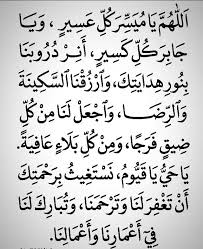 اَللّٰهُمَّ يَا مُيَسِّرَ كُلِّ عَسِيرٍ ، وَيَا
جَابِرَ كُلِّ كَسِيرٍ ، أَنِرْ دُرُوبَنَا
بِنُورِ هِدَايَتِكَ ، وَارْزُقْنَا السَّكِينَةَ
وَالرِّضَا ، وَاجْعَلْ لَنَا مِنْ كُلِّ
ضِيقٍ فَرَجًا ، وَمِنْ كُلِّ بَلَاءٍ عَافِيَةً.
يَا حَيُّ يَا قَيُّومُ، نَسْتَغِيثُ بِرَحْمَتِكَ
أَنْ تَغْفِرَ لَنَا وَتَرْحَمَنَا، وَتُبَارِكَ لَنَا
فِي أَعْمَارِنَا وَأَعْمَالِنَا.